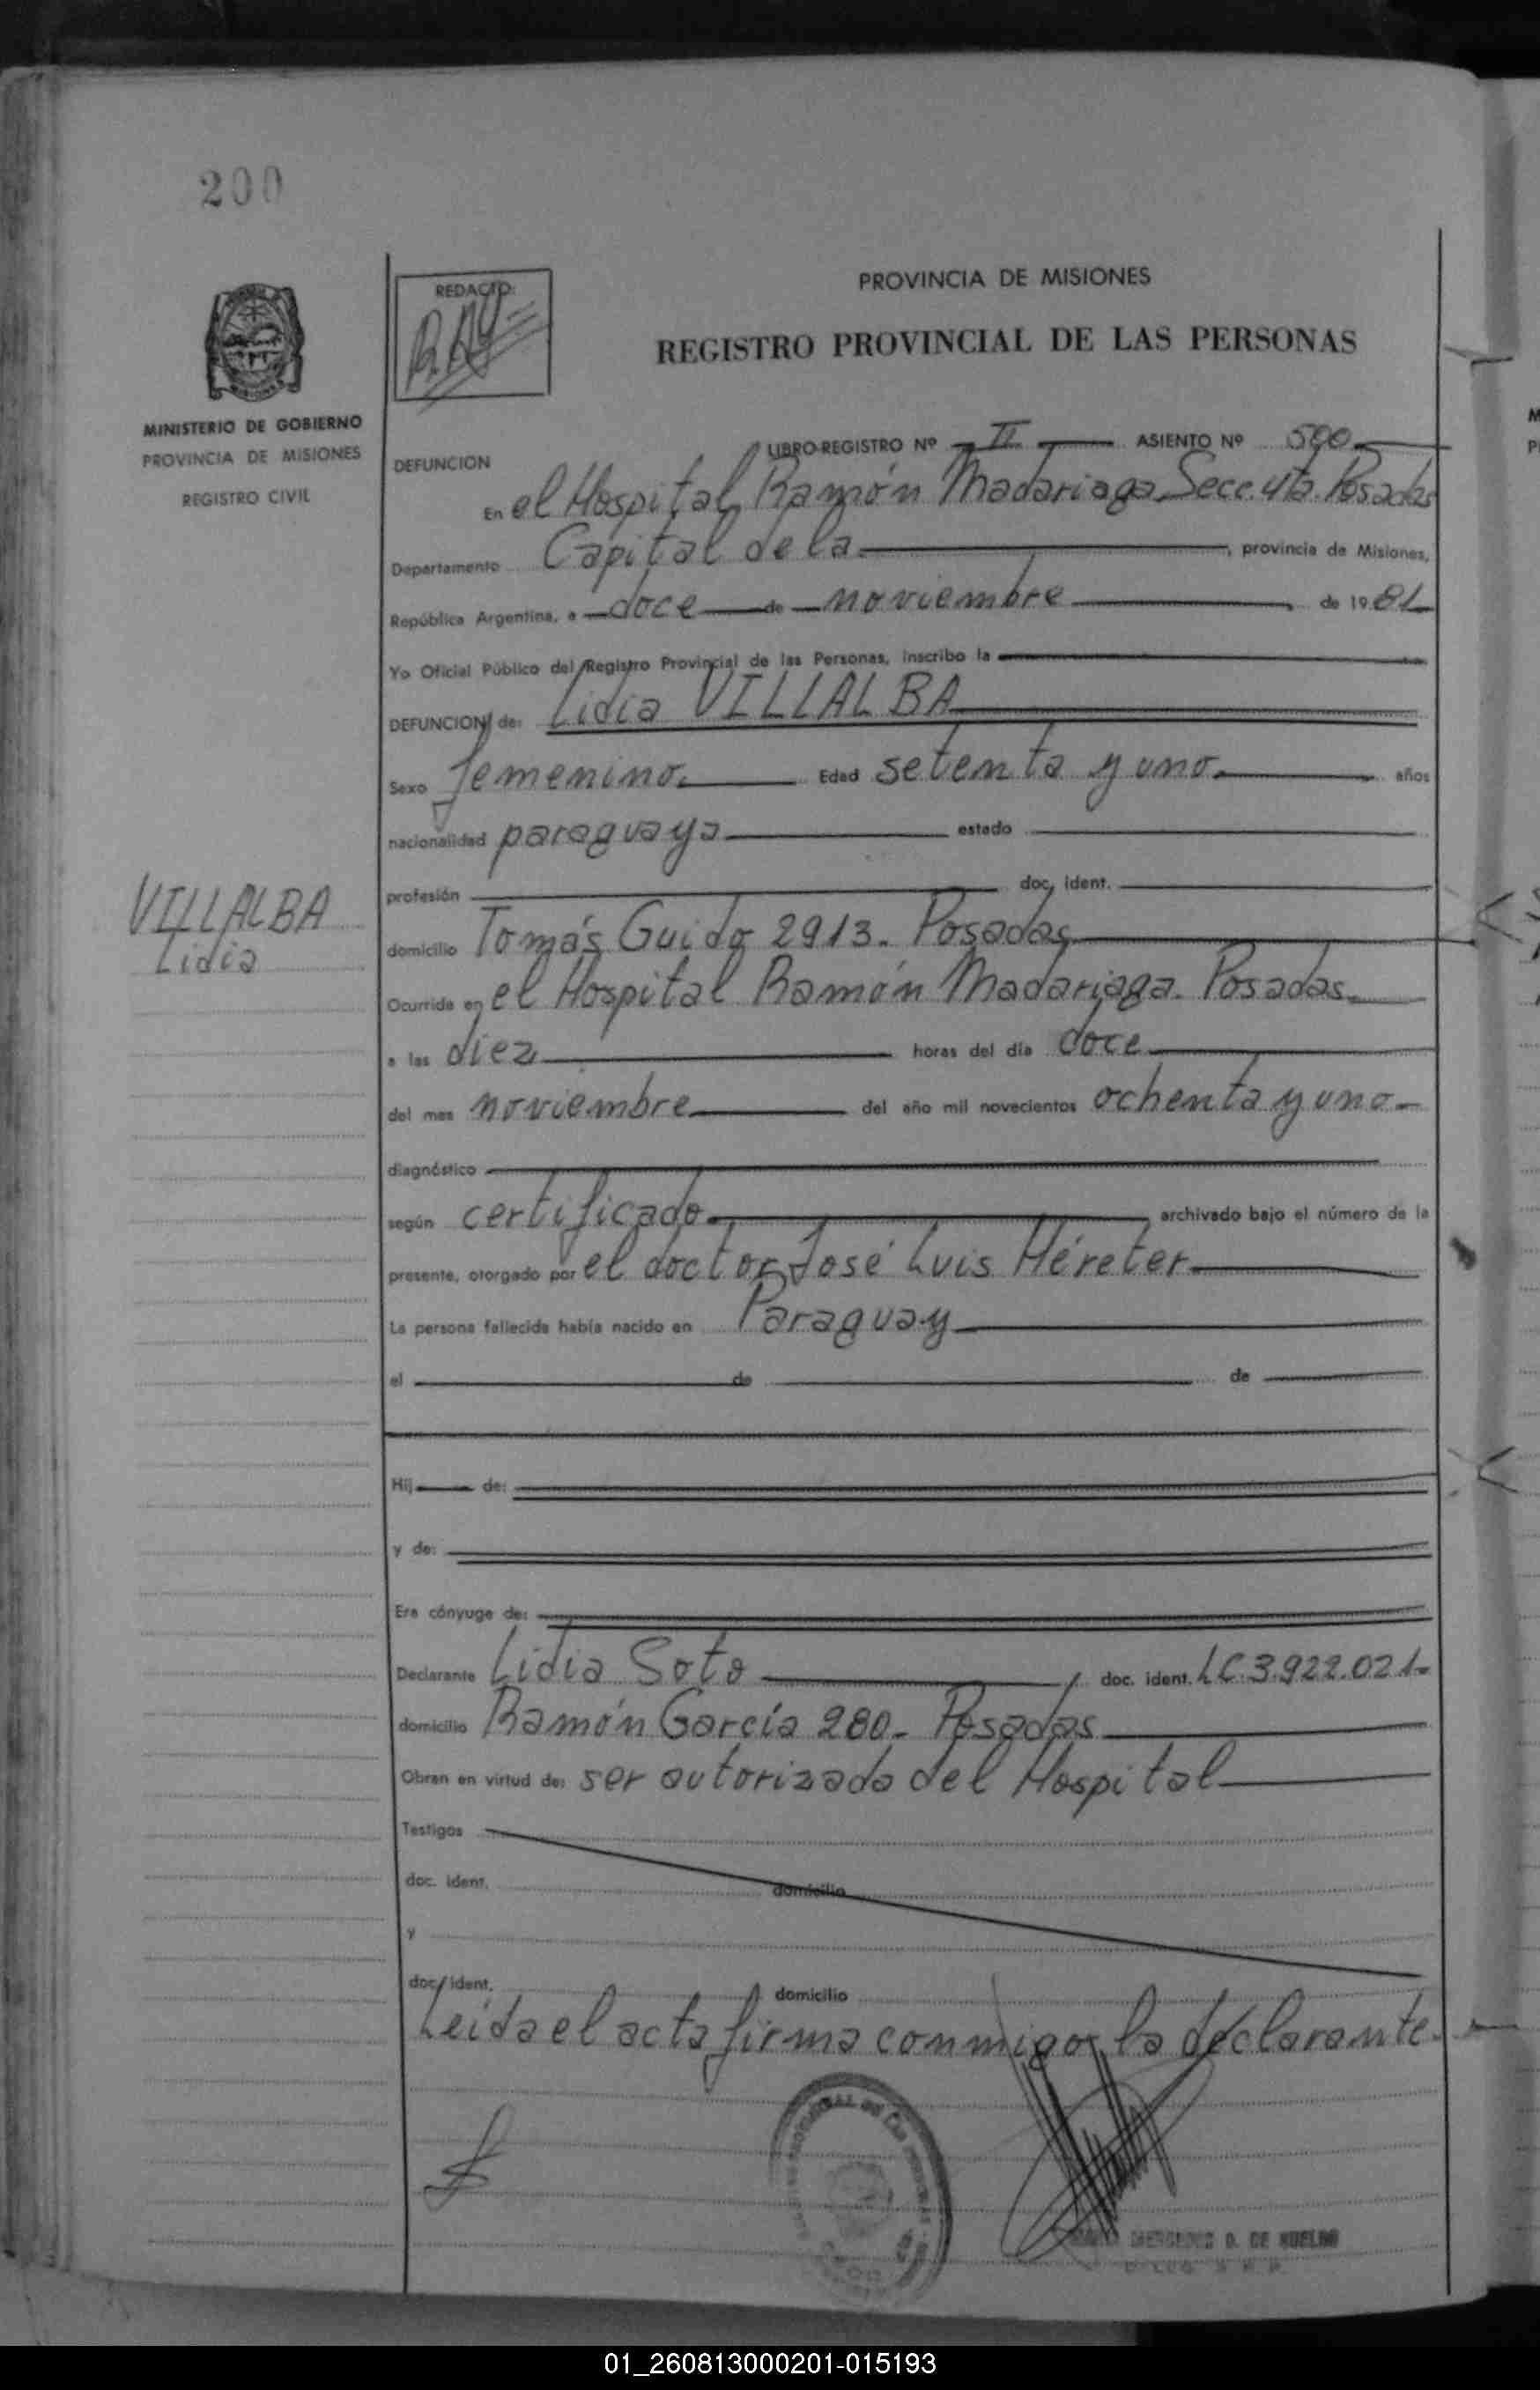 200
PROVINCIA DE MISIONES
REGISTRO PROVINCIAL DE LAS PERSONAS
REDACTO:
MINISTERIO DE GOBIERNO
PROVINCIA DE MISIONES
REGISTRO CIVIL
LIBRO-REGISTRO Nº II ASIENTO Nº 590
DEFUNCION
En el Hospital Ramón Madariaga Secc. 4ta. Posadas
Departamento Capital de la , provincia de Misiones,
República Argentina, a doce de noviembre de 1981
Yo Oficial Público del Registro Provincial de las Personas, inscribo la
DEFUNCION de: Lidia VILLALBA
Sexo femenino. Edad setenta y uno años
nacionalidad paraguaya estado
profesión doc. ident.
VILLALBA
Lidia
domicilio Tomás Guido 2913. Posadas
Ocurrida en el Hospital Ramón Madariaga. Posadas.
a las diez horas del día doce
del mes noviembre del año mil novecientos ochenta y uno
diagnóstico
según certificado archivado bajo el número de la
presente, otorgado por el doctor José Luis Héreter
La persona fallecida había nacido en Paraguay
el de de
Hij de:
y de:
Era cónyuge de:
Declarante Lidia Soto , doc. ident. LC.3.922.021
domicilio Ramón García 280- Posadas
Obran en virtud de: ser autorizada del Hospital
Testigos
doc. ident. domicilio
y
doc. ident. domicilio
Leida el acta firma conmigo la declarante.
D. DE
01_260813000201-015193